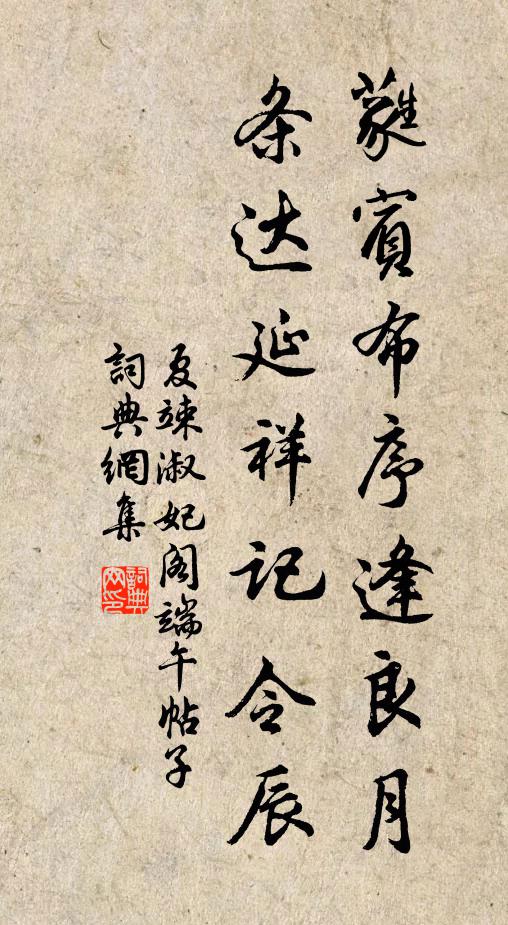 蕤賓布序逢良月
条达延祥记令辰
夏竦淑妃阁端午帖子
詞典網集
詞典網印